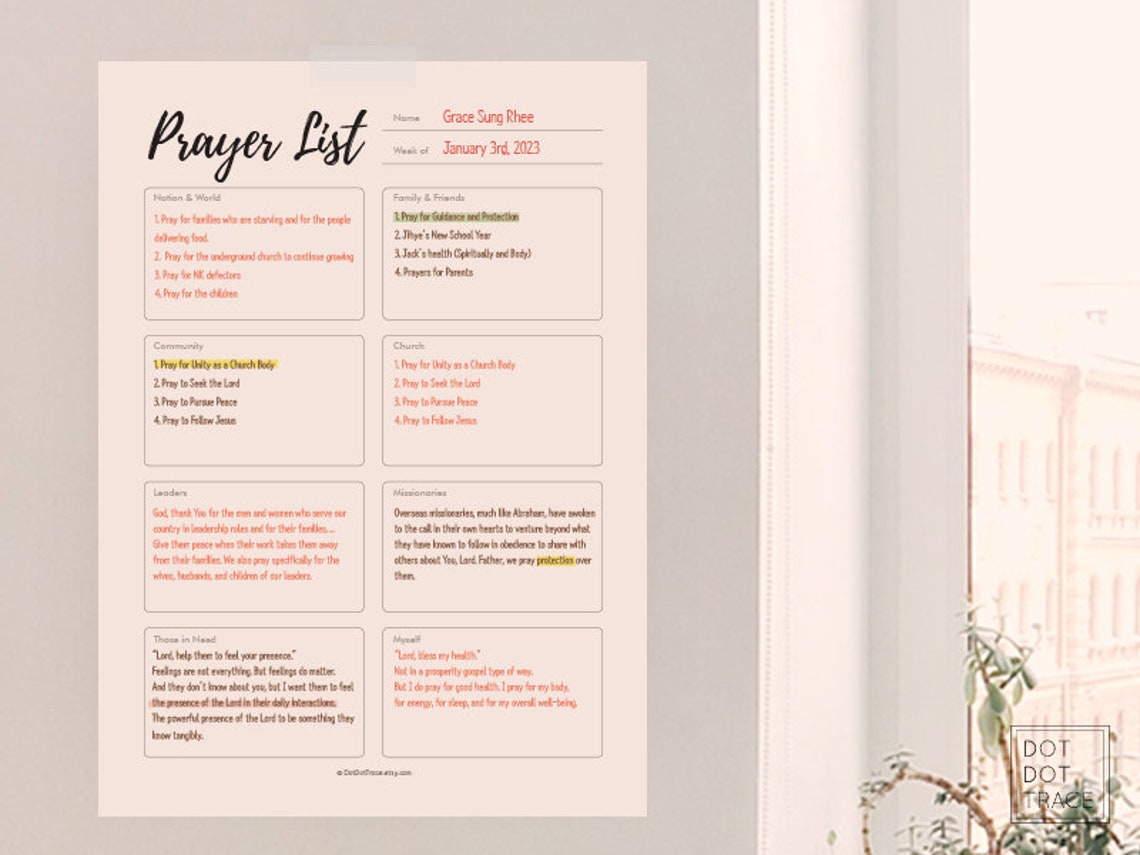 Prayer List
Name Grace Sung Rhee
Week of January 3rd, 2023
Nation & World
1. Pray for families who are starving and for the people
delivering food.
2. Pray for the underground church to continue growing
3. Pray for NK defectors
4. Pray for the children
Family & Friends
1. Pray for Guidance and Protection
2. Jihye's New School Year
3. Jack's health (Spiritually and Body)
4. Prayers for Parents
Community
1. Pray for Unity as a Church Body
2. Pray to Seek the Lord
3. Pray to Pursue Peace
4. Pray to Follow Jesus
Church
1. Pray for Unity as a Church Body
2. Pray to Seek the Lord
3. Pray to Pursue Peace
4. Pray to Follow Jesus
Leaders
God, thank You for the men and women who serve our
country in leadership roles and for their families....
Give them peace when their work takes them away
from their families. We also pray specifically for the
wives, husbands, and children of our leaders.
Missionaries
Overseas missionaries, much like Abraham, have awoken
to the call in their own hearts to venture beyond what
they have known to follow in obedience to share with
others about You, Lord. Father, we pray protection over
them.
Those in Need
"Lord, help them to feel your presence."
Feelings are not everything. But feelings do matter.
And they don't know about you, but I want them to feel
the presence of the Lord in their daily interactions.
The powerful presence of the Lord to be something they
know tangibly.
Myself
"Lord, bless my health."
Not in a prosperity gospel type of way.
But I do pray for good health. I pray for my body,
for energy, for sleep, and for my overall well-being.
© DotDotTrace.etsy.com
DOT
DOT
TRACE